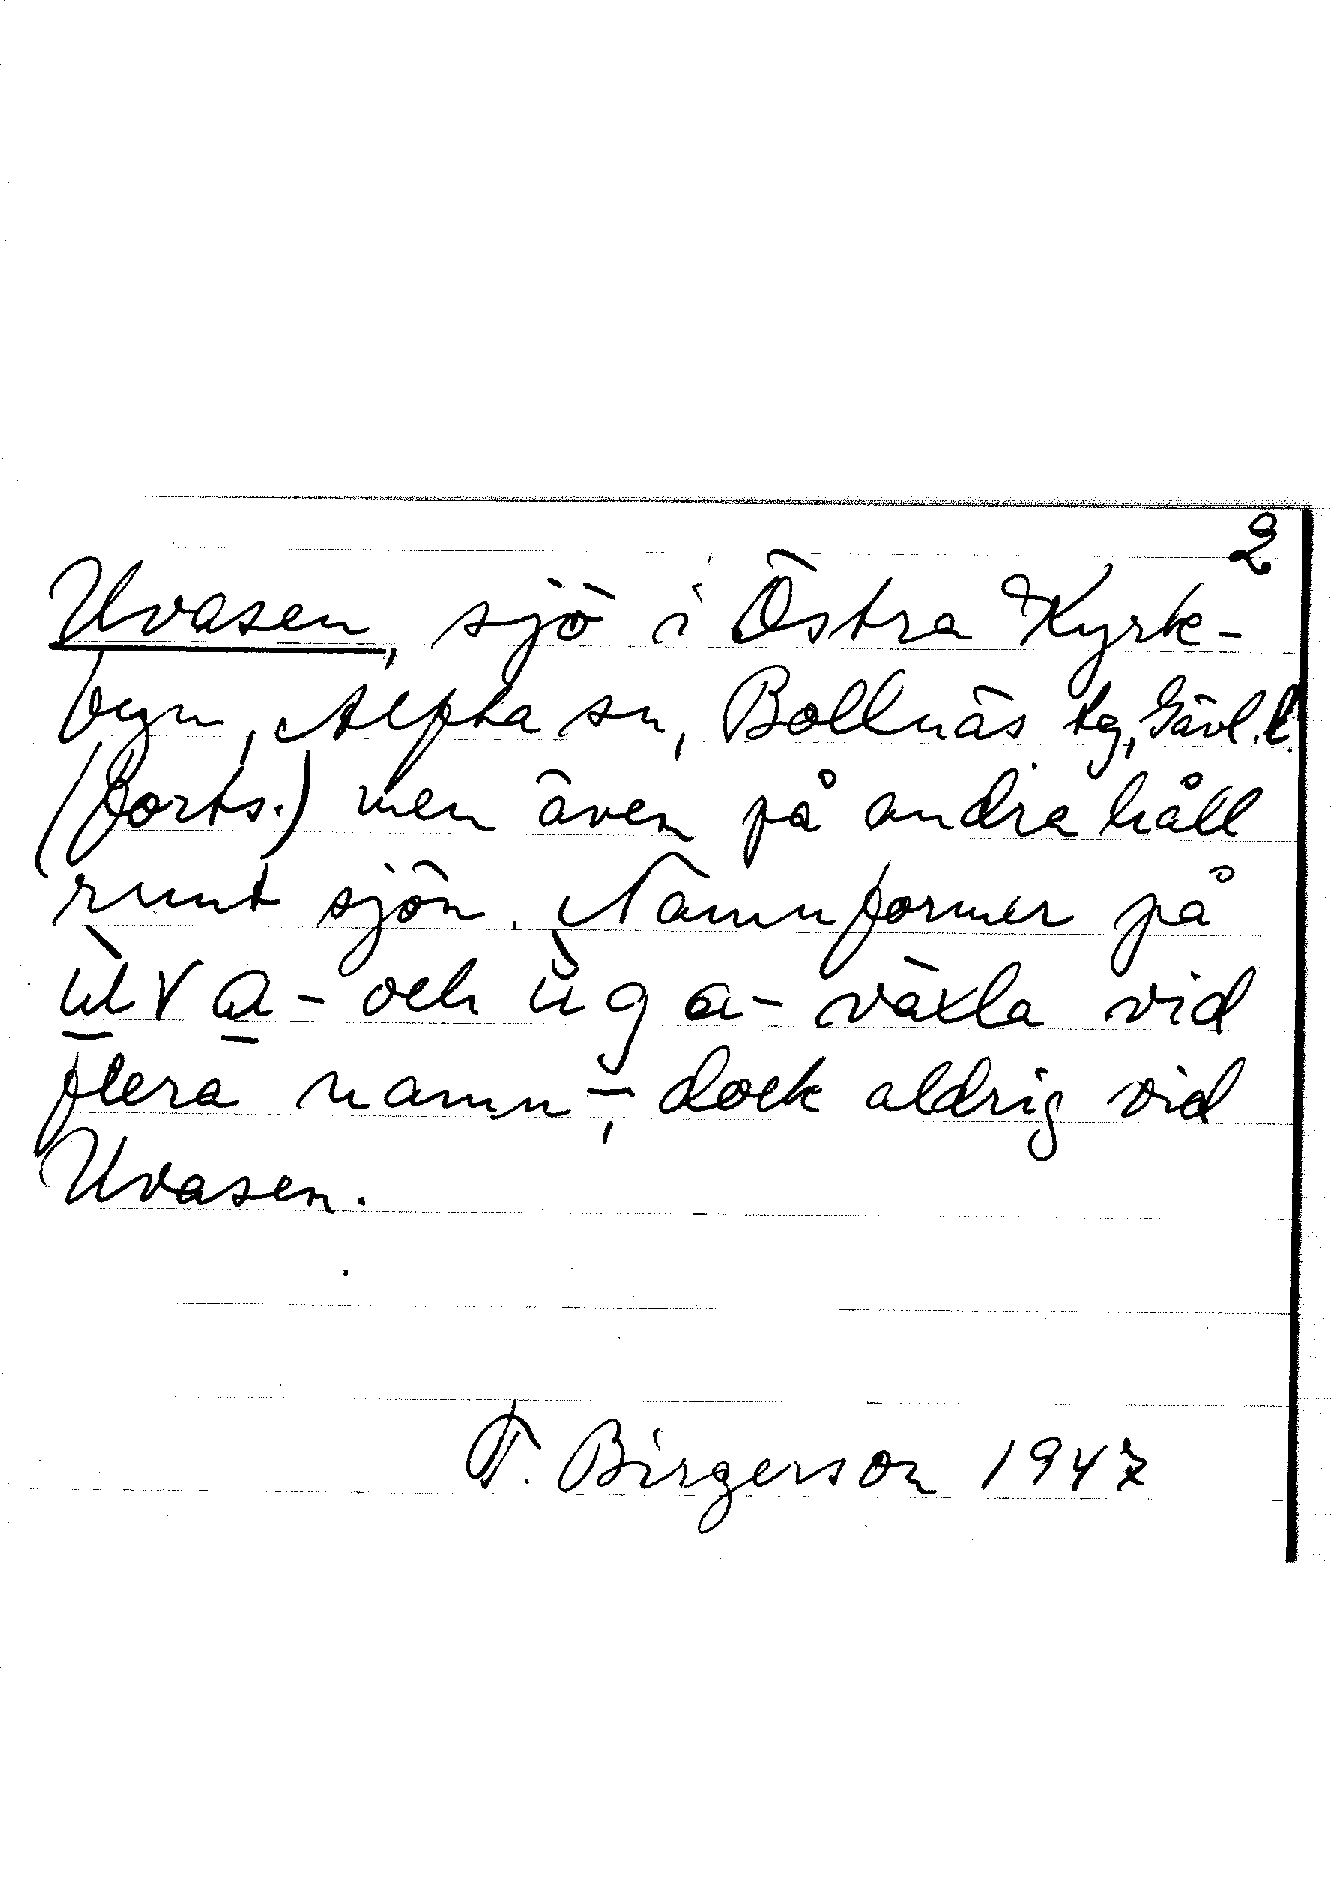 2
Uvasen, sjö i Östra Kyrk-
byn, Alfta sn, Bollnäs tg, Gävl. l.
(forts.) men även på andra håll
runt sjön. Namnformer på
ùva- och ùga- växla vid
flera namn, dock aldrig vid
Uvasen.
F. Birgerson 1947